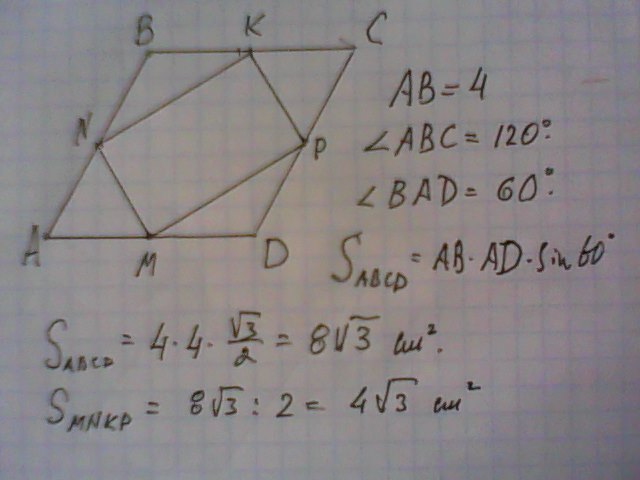 B K C
N P
A M D
AB = 4
∠ABC = 120°.
∠BAD = 60°.
S_ABCD = AB · AD · sin 60°
S_ABCD = 4 · 4 · √3/2 = 8√3 cm².
S_MNKP = 8√3 : 2 = 4√3 cm²